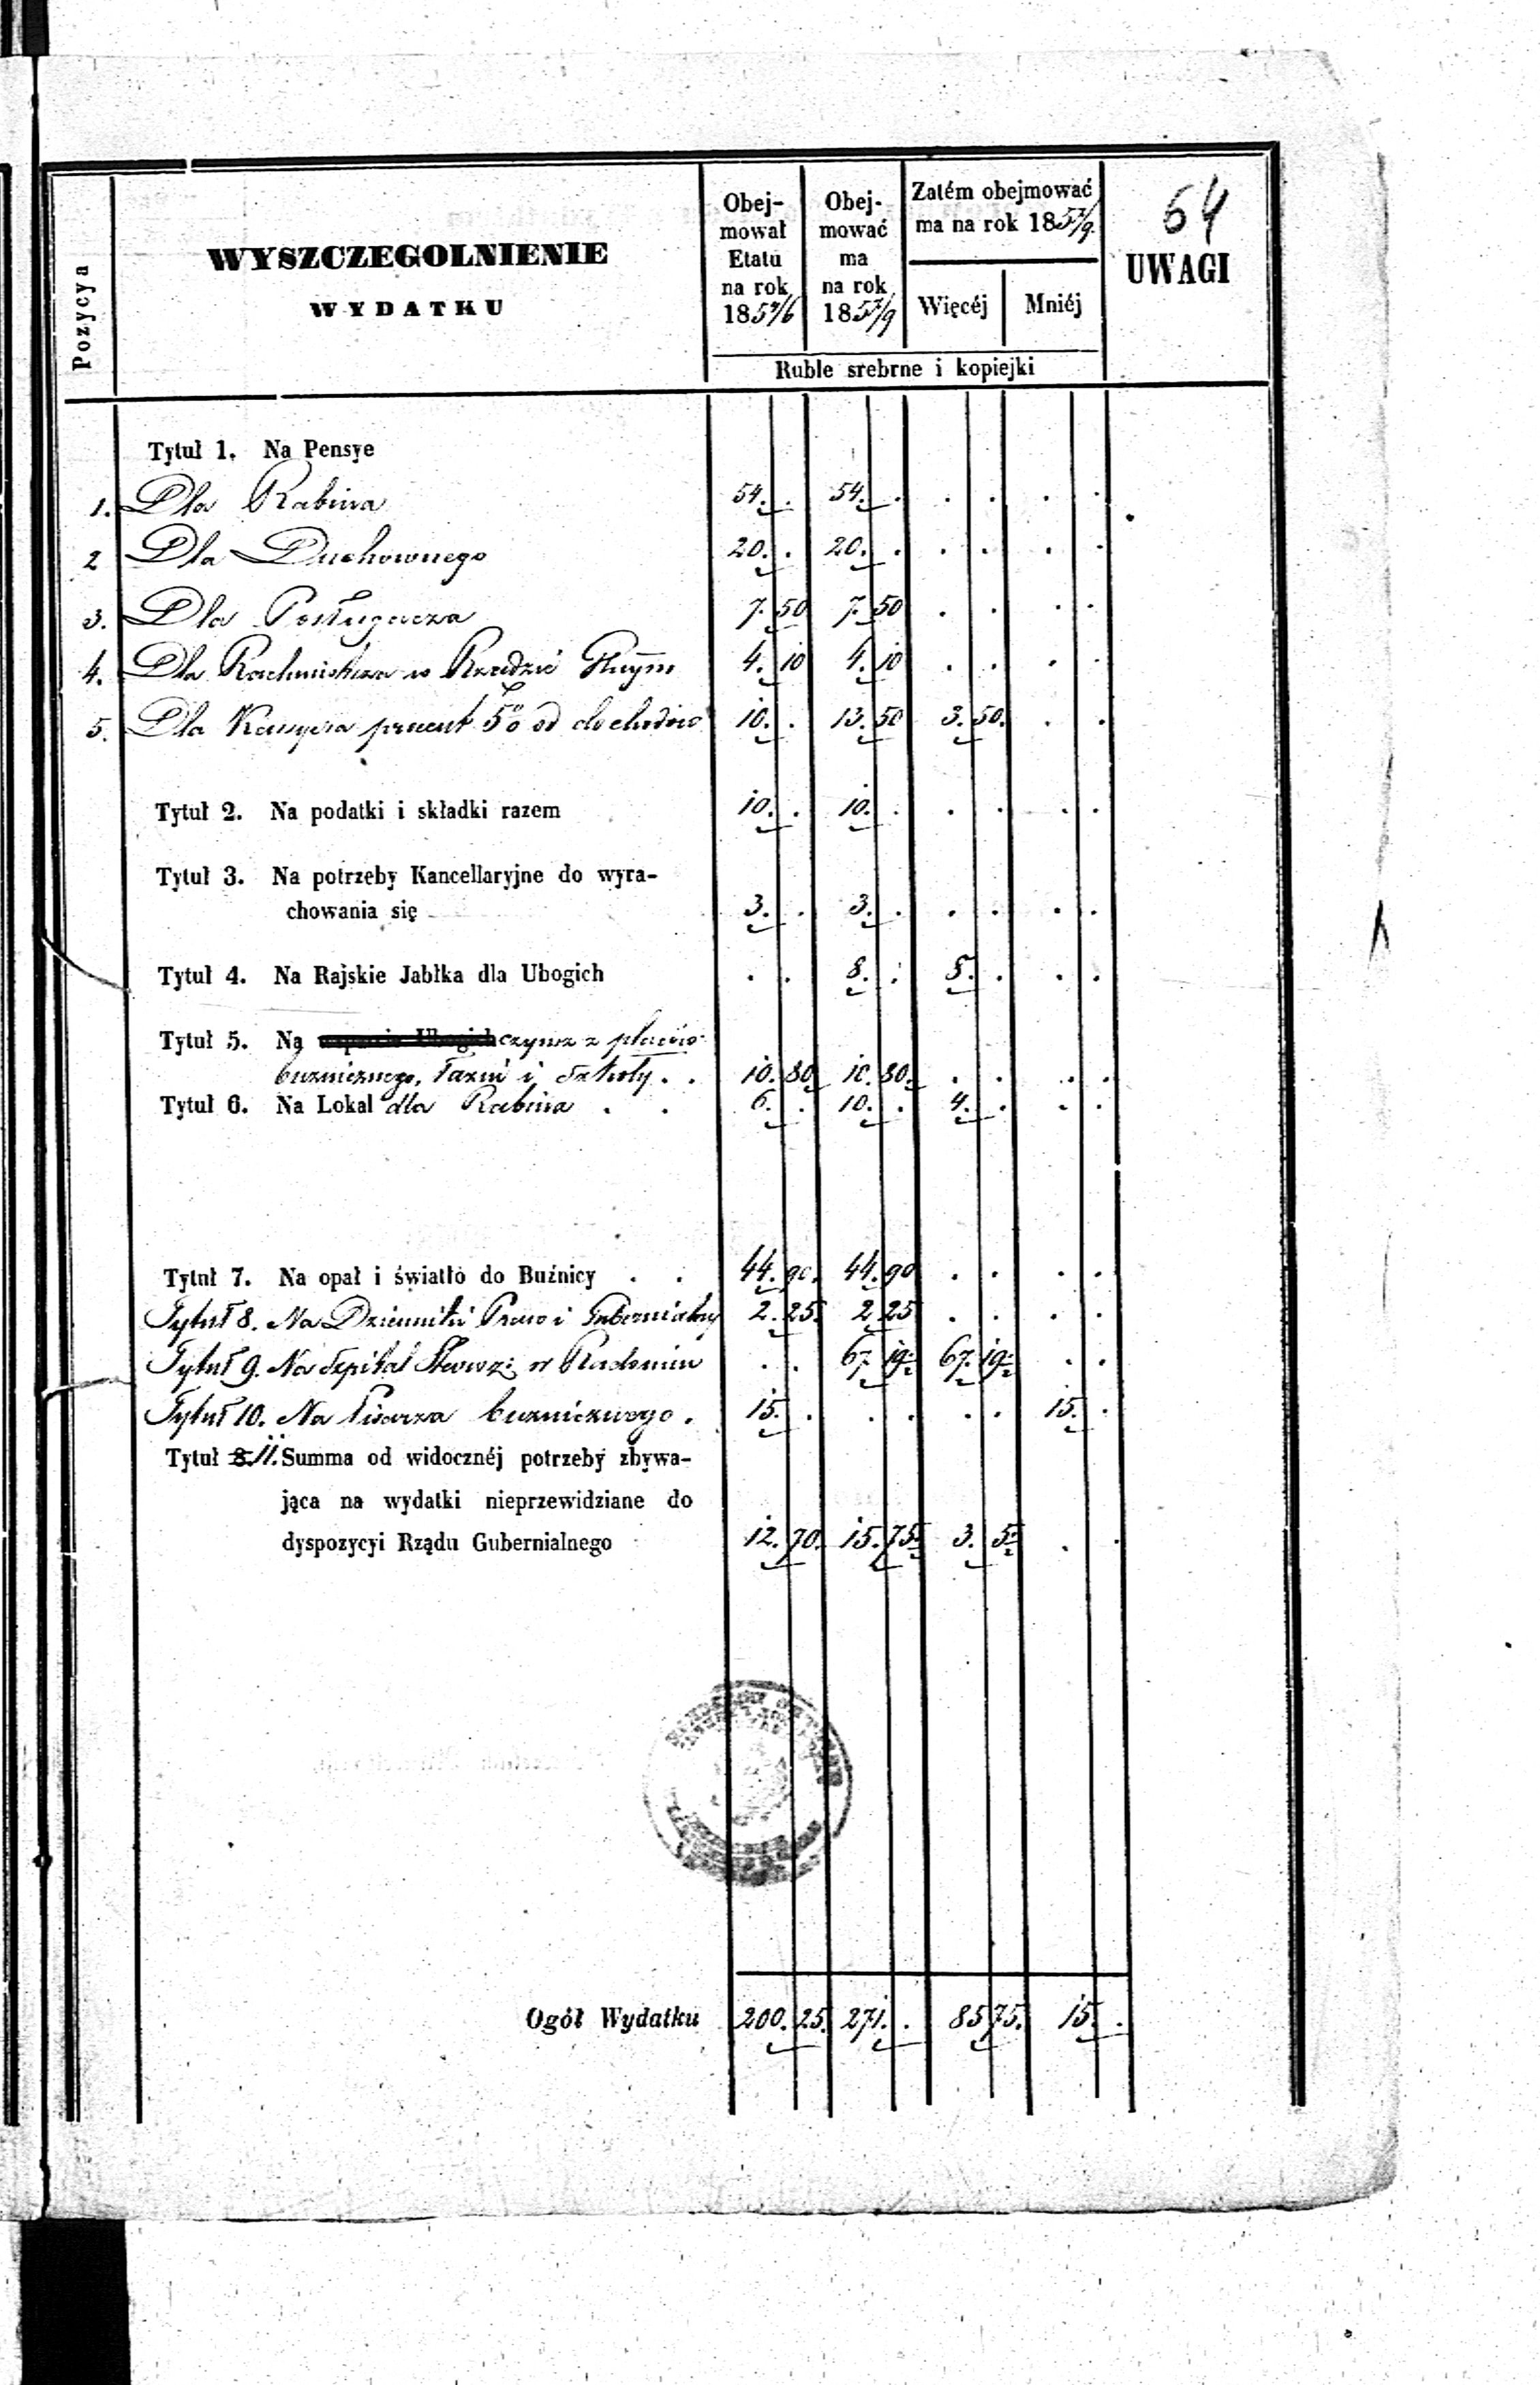 64
Pozycya
WYSZCZEGOLNIENIE
WYDATKU
Obej-
mował
Etatu
na rok
185 4/6
Obej-
mować
ma
na rok
185 7/9
Zatém obejmować
ma na rok 185 7/9
Więcéj
Mniéj
UWAGI
Ruble srebrne i kopiejki
Tytuł 1. Na Pensye
1. Dla Rabina 54. . 54. . . . . .
2 Dla Duchownego 20. . 20. . . . . .
3. Dla Posługacza 7. 50 7. 50 . . . .
4. Dla Rachmistrza w Rządzie Głnym 4. 10 4. 10 . . . .
5. Dla Kassyera procent 5% od dochodów 10. . 13. 50 3. 50. . .
Tytuł 2. Na podatki i składki razem 10. . 10. . . . . .
Tytuł 3. Na potrzeby Kancellaryjne do wyra-
chowania się 3. . 3. . . . . .
Tytuł 4. Na Rajskie Jabłka dla Ubogich . . 8. . 8. . . .
Tytuł 5. Na wsparcie Ubogich czynsz z placów
buznicznego, łaźni i szkoły . . 10. 80 10. 80. . . . .
Tytuł 6. Na Lokal dla Rabina . . 6. . 10. . 4. . . .
Tytuł 7. Na opał i światło do Buźnicy . . 44. 90. 44. 90 . . . .
Tytuł 8. Na Dzienniki Praw i Gubernialny 2. 25. 2 25 . . . .
Tytuł 9. Na Szpital Staroz: w Radomiu . . 67. 19 1/2 67. 19 1/2 . .
Tytuł 10. Na Pisarza buznicznego. 15. . . . . . 15. .
Tytuł 8. 11. Summa od widocznéj potrzeby zbywa-
jąca na wydatki nieprzewidziane do
dyspozycyi Rządu Gubernialnego 12. 70. 15. 75 1/2 3. 5 1/2 . .
Ogół Wydatku 200. 25. 271. . 85 75. 15. .